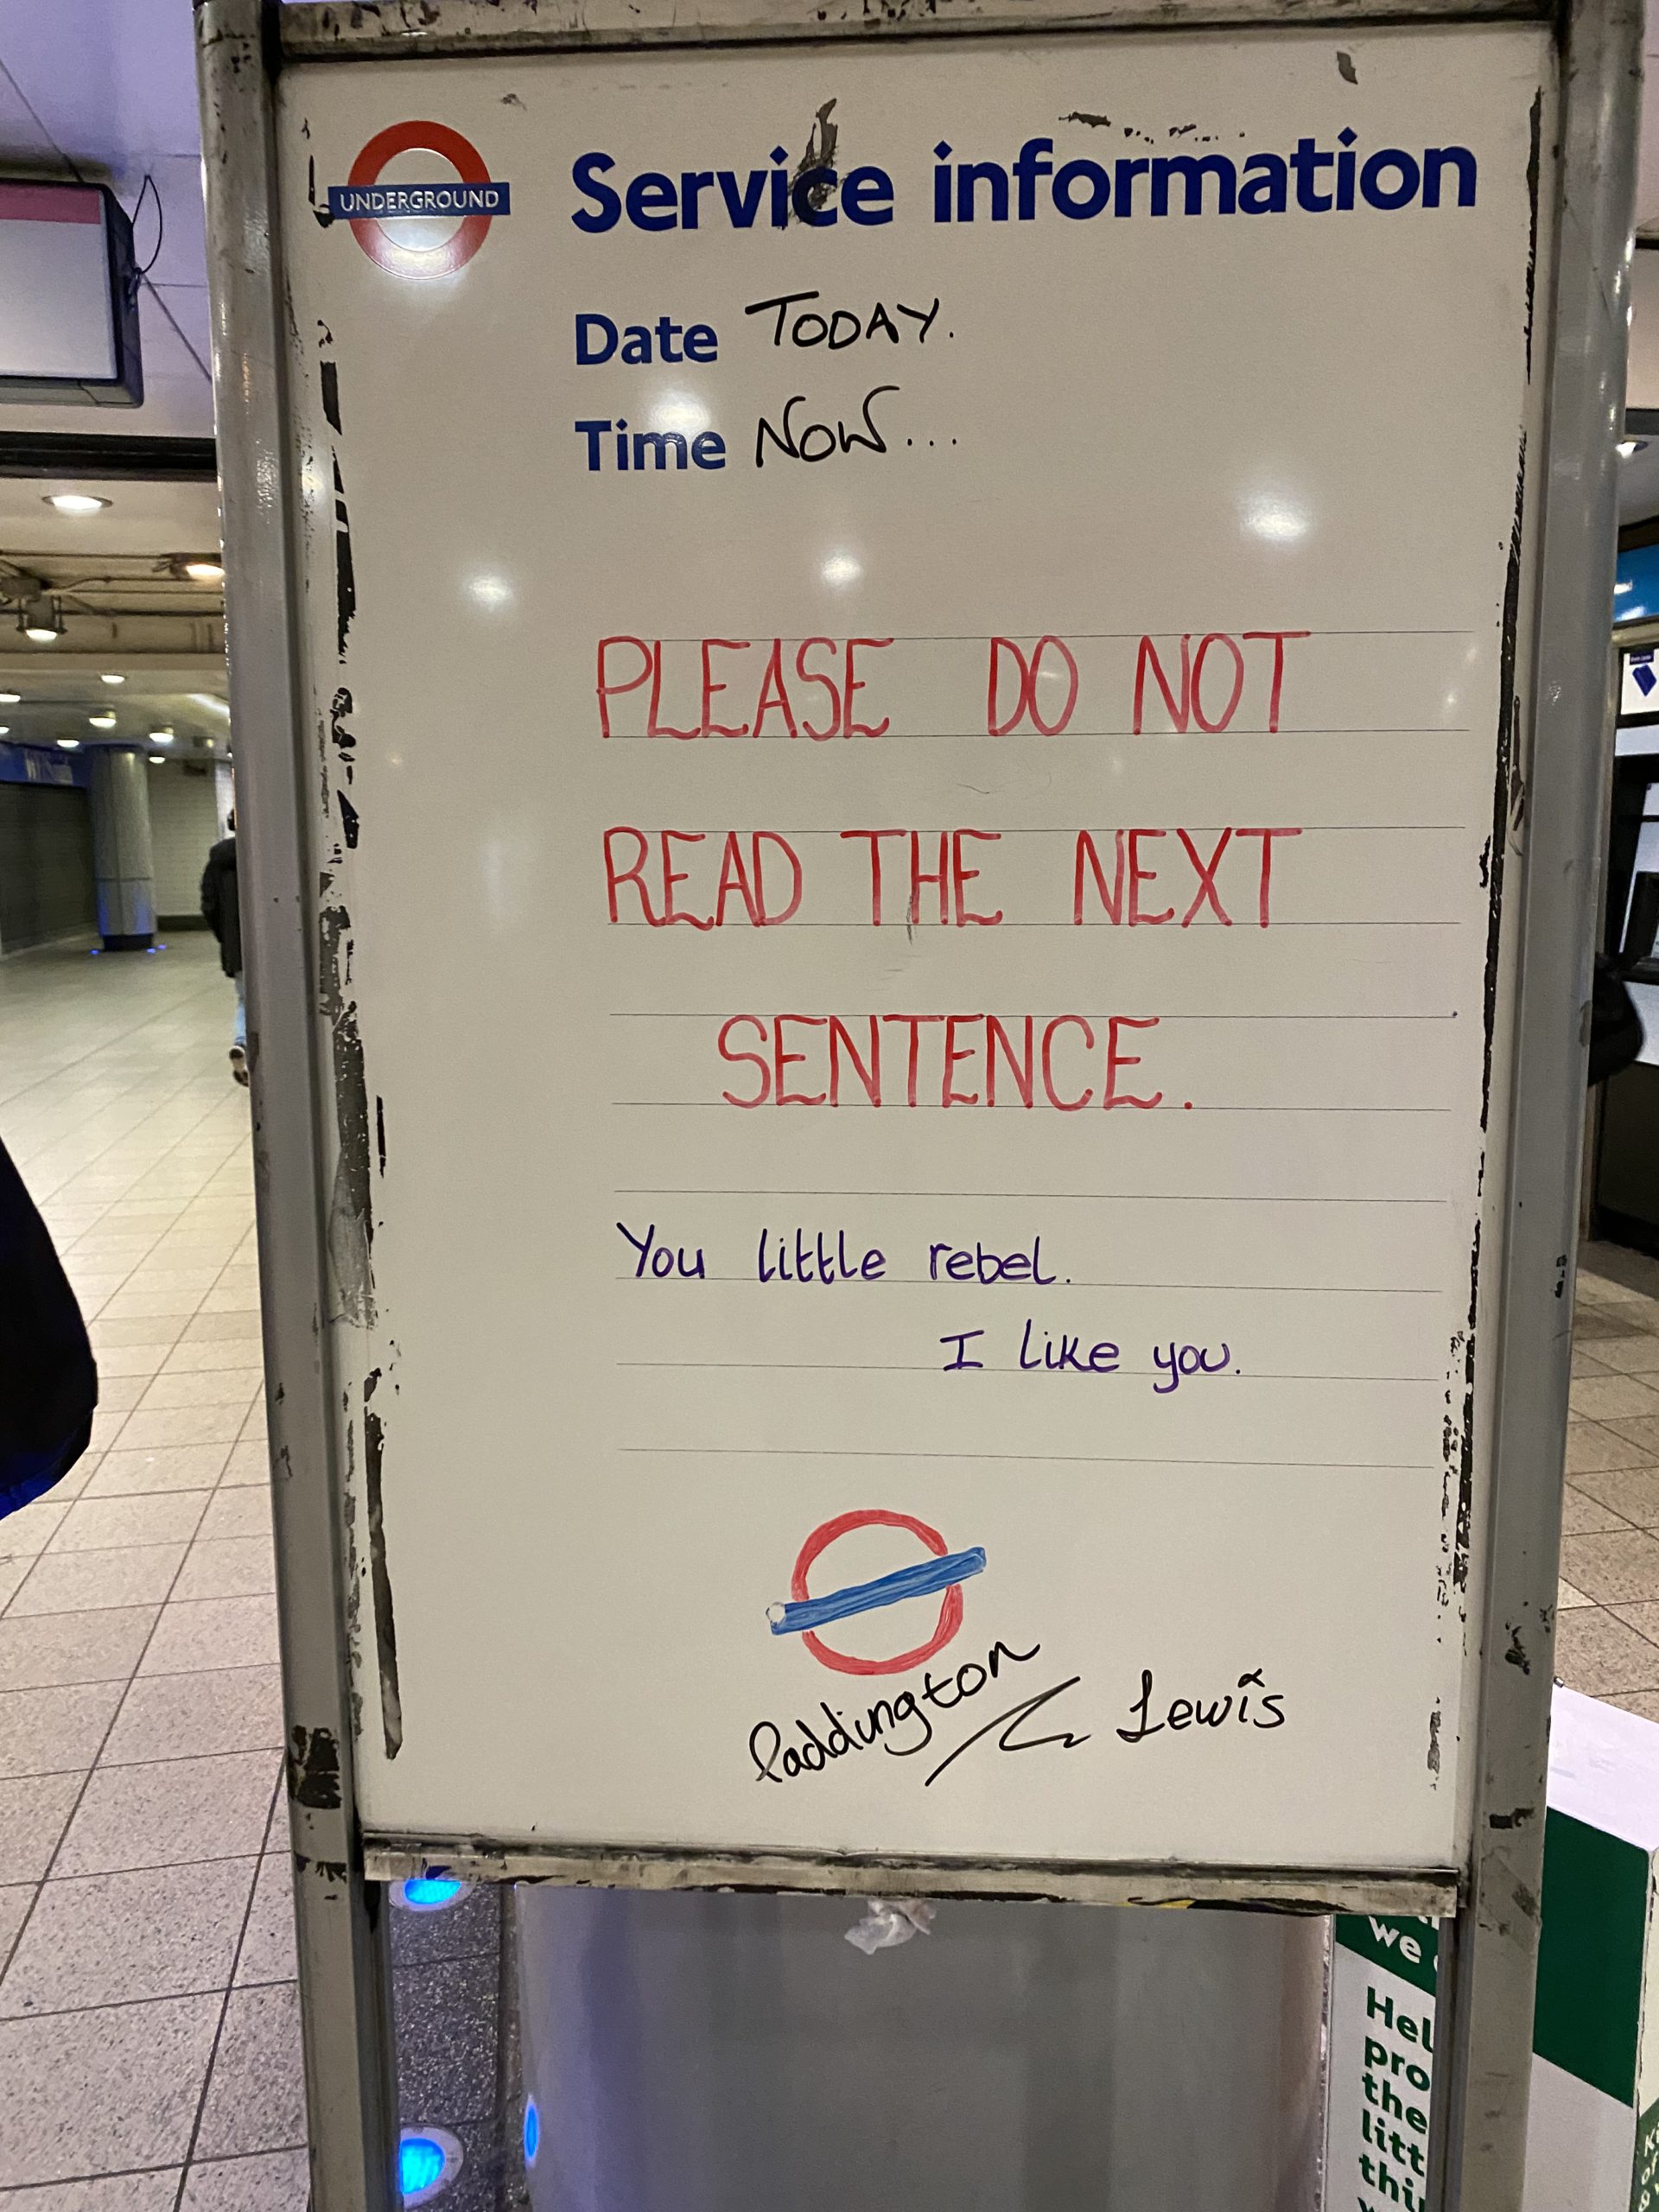 UNDERGROUND
Service information
Date TODAY.
Time NOW...
PLEASE DO NOT
READ THE NEXT
SENTENCE.
You little rebel.
I like you.
Paddington
Lewis
we
Hel
pro
the
litt
thi